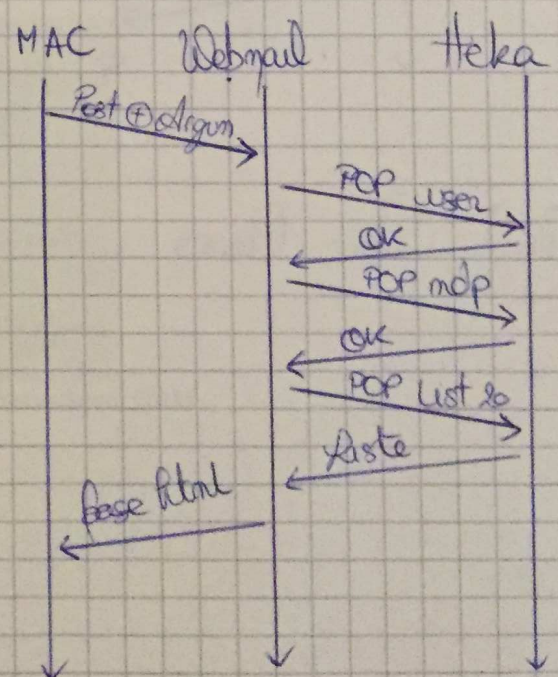 MAC Webmail Heka
Post ⊕ Argum
POP user
OK
POP mdp
OK
POP List 20
Liste
page html